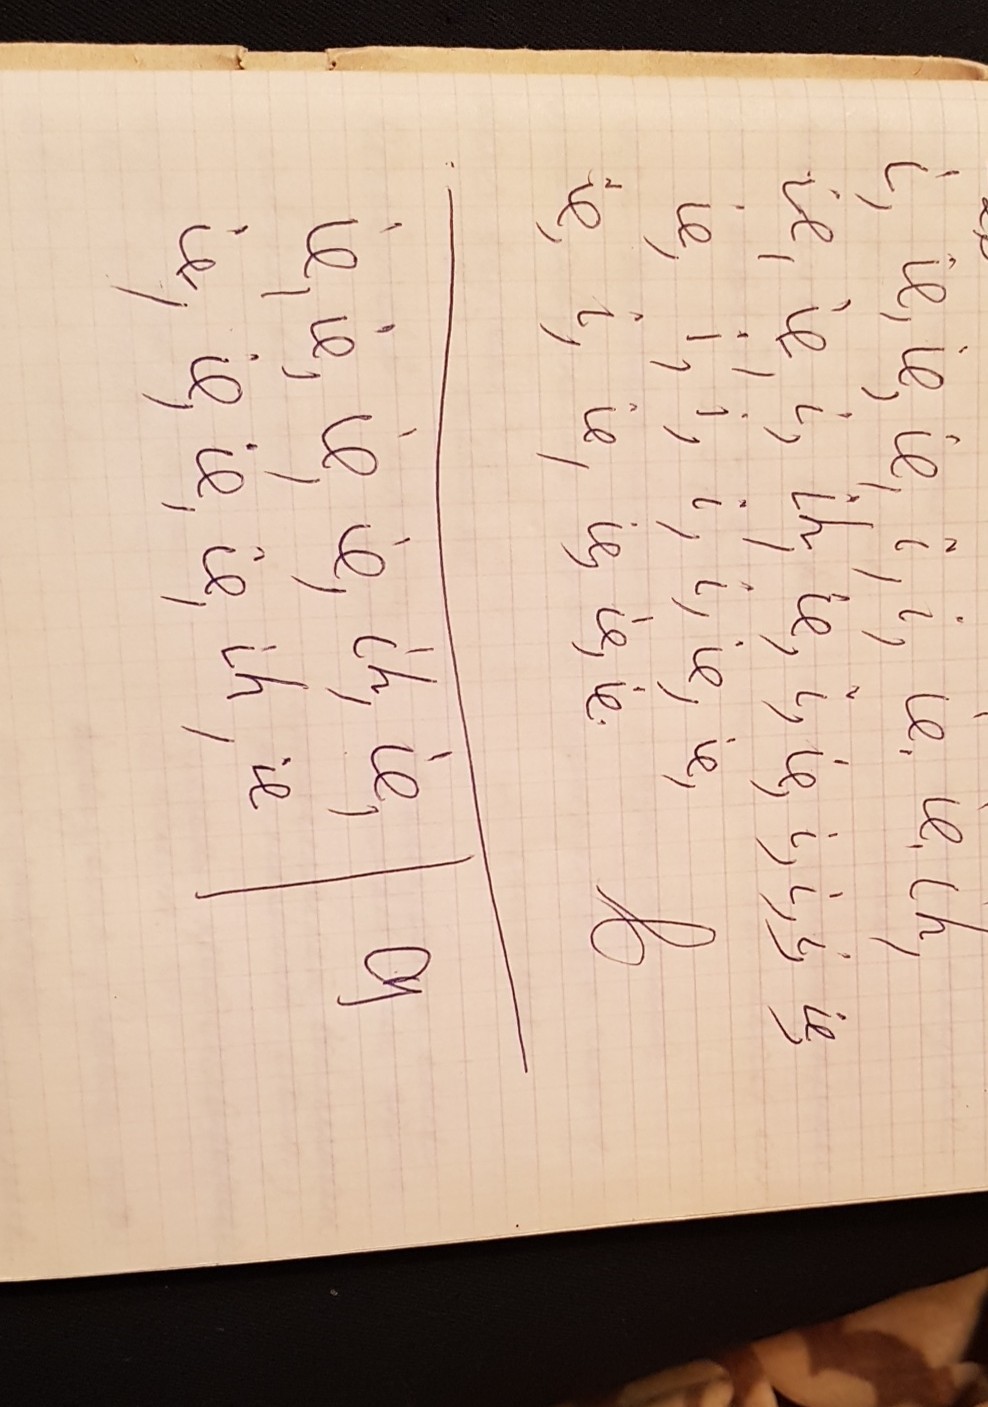 i, ie, ie, ie, i, i, ie, ie, ih,
ie, ie, i, ih, ie, i, ie, i, i, i, ie,
ie, i, i, i, i, ie, ie,
ie, i, ie, ie, ie, ie.
ie, ie, ie, ie, ih, ie,
ie, ie, ie, ie, ih, ie